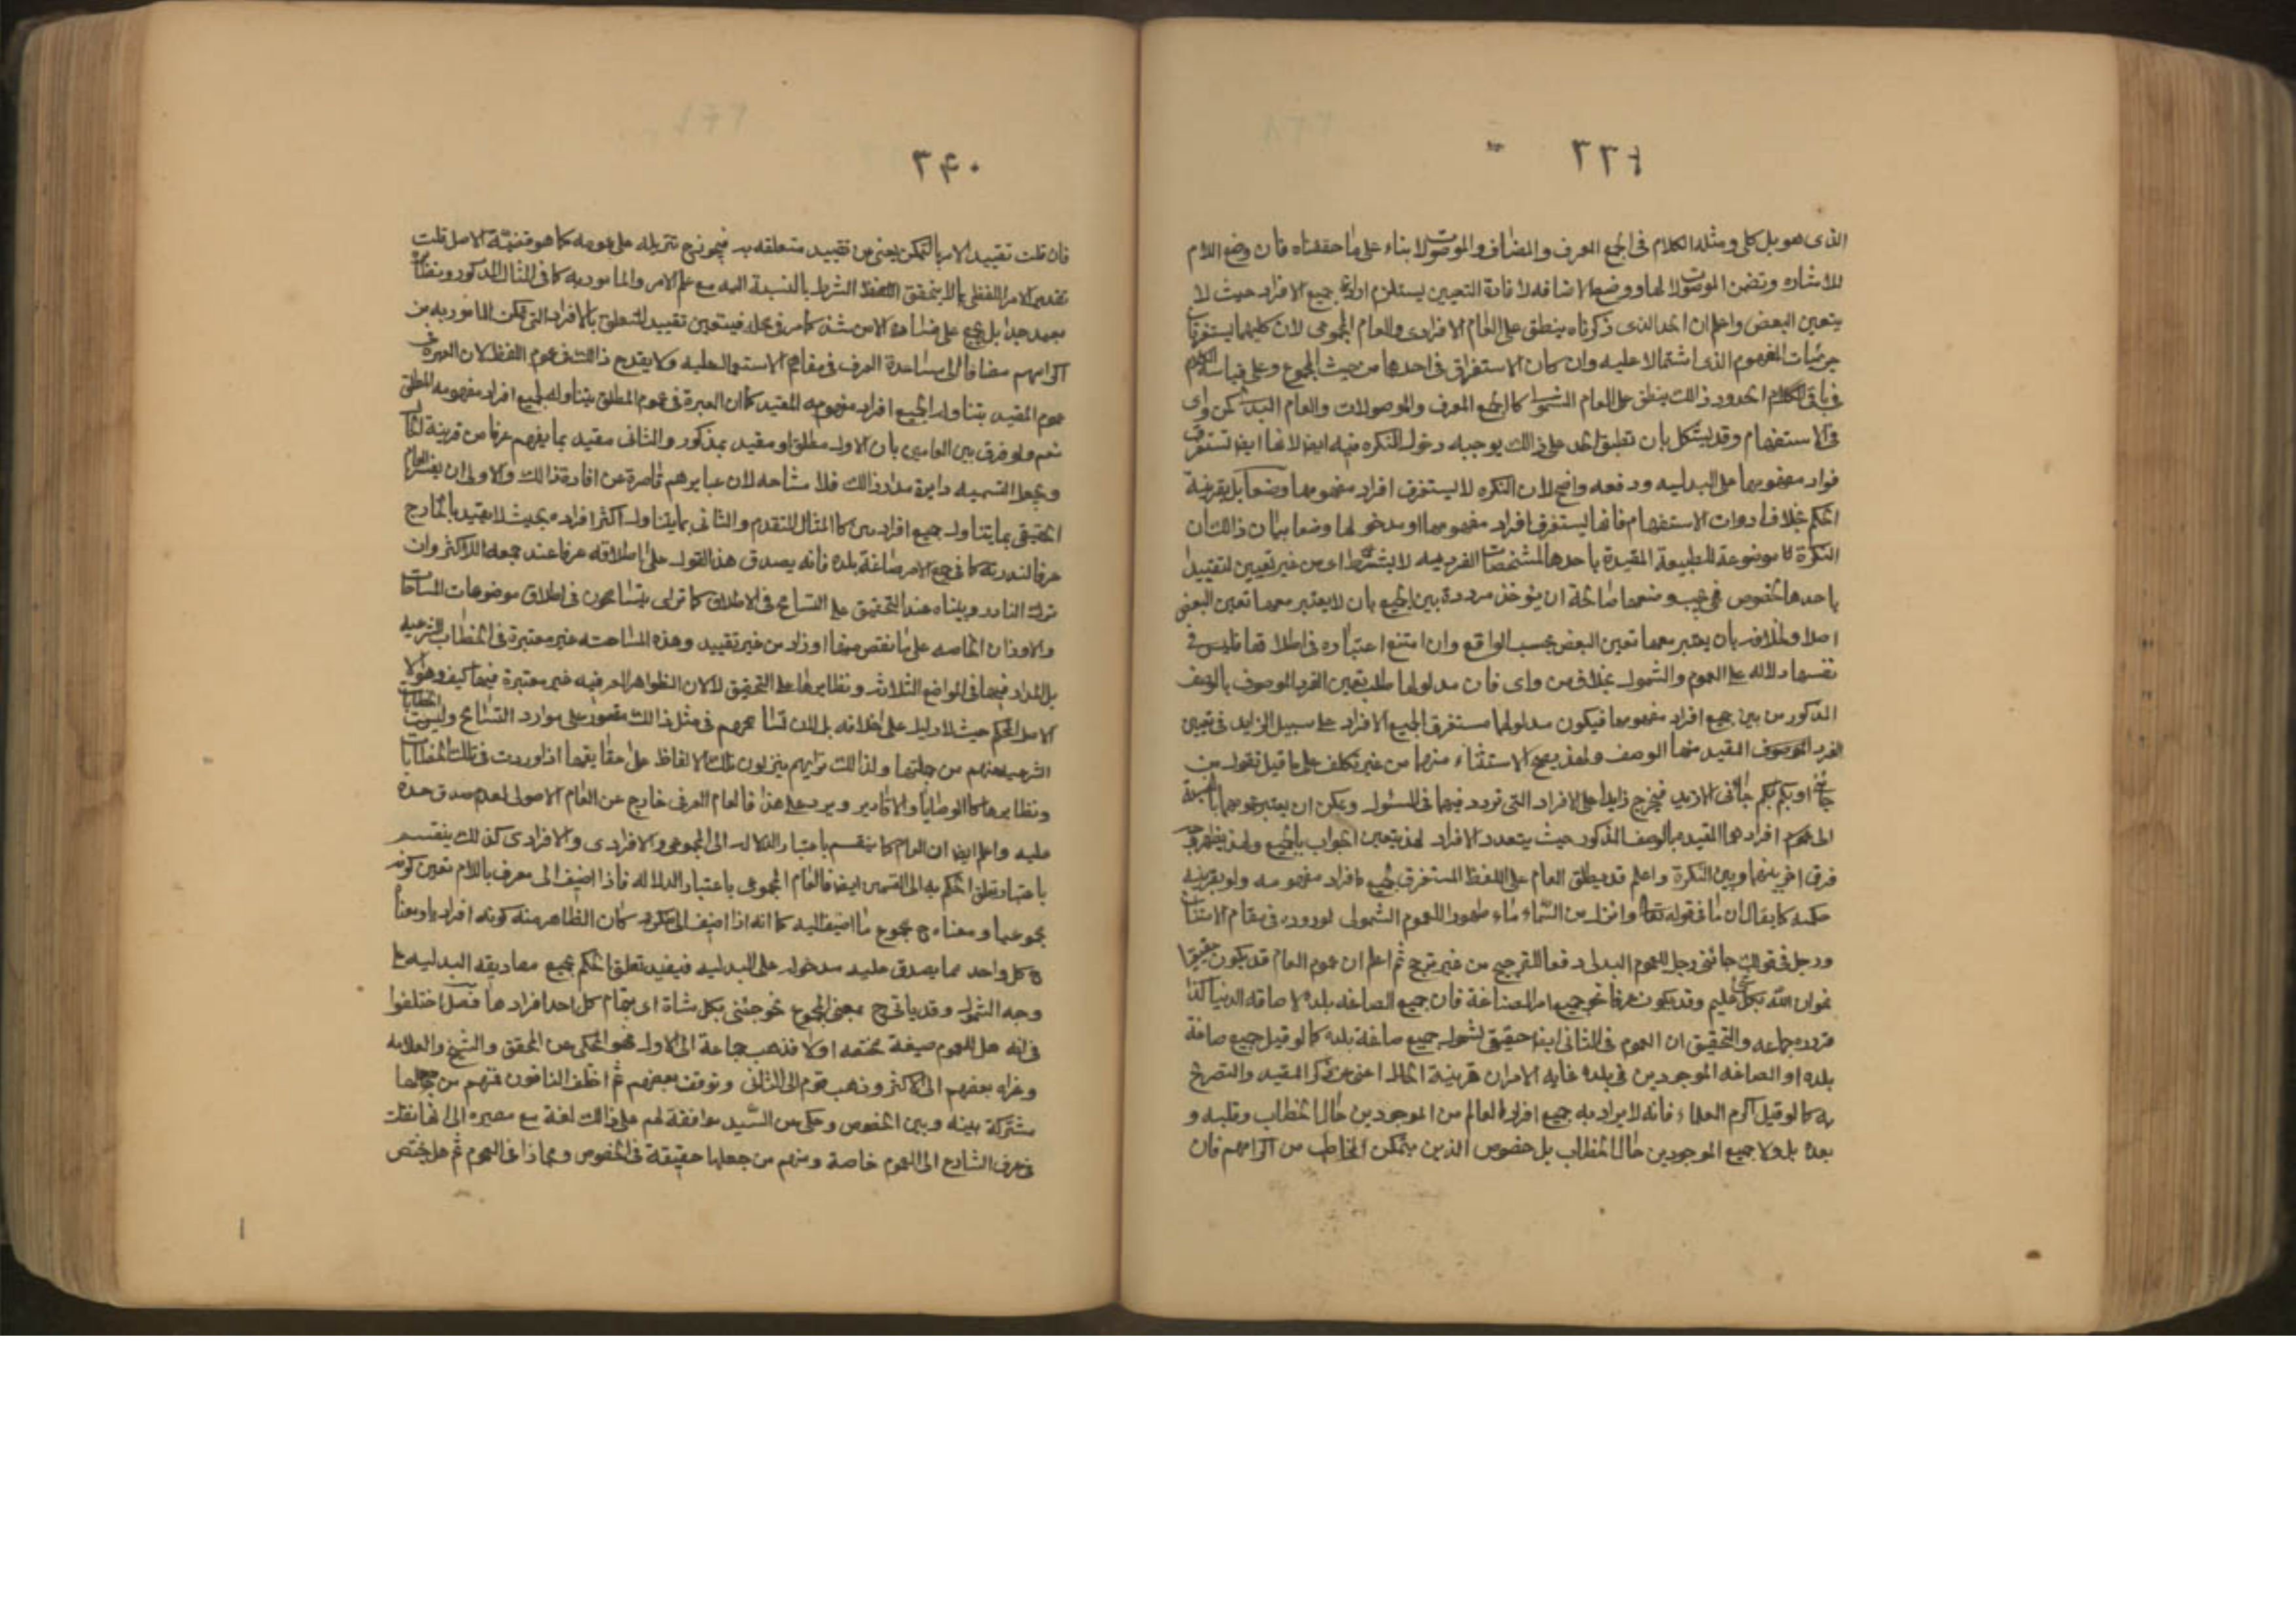 ٣٣٩
الذى هو بل كلى ومثله الكلام فى الجمع المعرف والمضاف والموصولات بناء على ما حققناه فان وضع اللام
للاشاره وتضمن الموصولات لها ووضع الاضافه لافادة التعيين يستلزم ارادة جميع الافراد حيث لا
يتعين البعض واعلم ان الحد الذى ذكرناه ينطق على العام الافرادى والعام المجموعى لان كليهما يستغرقان
جزئيات المفهوم الذى اشتملا عليه وان كان الاستغراق فى احدهما من حيث المجموع وعلى قياسه الكلام
فى باقى الحدود وكذلك ينطق على العام الشمولى كالجمع المعرف والموصولات والعام البدلى كمن واى
فى الاستفهام وقد يشكل بان تطبيق الحد على ذلك يوجبه دخول النكره فيه ايضا لانها ايضا تستغرق
افراد مفهومها على البدليه ودفعه واضح لان النكره لا يستغرق افراد مفهومها وضعا بل بقرينة
الحكم بخلاف ادوات الاستفهام فانها ليستغرق افراد مفهومها او مدخولها وضعا بيان ذلك ان
النكرة موضوعة للطبيعة المقيدة باحدها المشخصات الفرديه لا بشرط اى من غير تعيين لتقييدها
باحدها بخصوص فهى بوضعها صالحة ان يؤخذ مرددة بين الجميع بان لا يعتبر معها تعين البعض
اصلا ولفلافه بان يعتبر معها تعين البعض بحسب الواقع وان امتنع اعتباره فى اطلاقها فليس فى
نفسها دلاله على العموم والشمول بخلاف من واى فان مدلولها طلب تعيين الفرد الموصوف بالوصف
المذكور من بين جميع افراد مفهومها فيكون مدلولها مستغرق لجميع الافراد على سبيل الترديد فى تعيين
الفرد الموصوف المقيد منها الوصف ولهذا يصح الاستثناء منها من غير تكلف على ما قيل فتقول من
جائنى او ايكم جائنى الا زيد فيخرج زيدا على الافراد التى تردد فيها فى السئول ويمكن ان يعتبر عمومها بالنسبة
الى عموم افرادهما المقيده بالوصف المذكور حيث يتعدد الافراد لهذا يتعين الجواب بالجميع ولهذا يظهر وجه
فرق اخر بينها وبين النكرة واعلم قد يطلق العام على اللفظ المستغرق لجميع افراد مفهومه ولو بقرينه
حكمه كما يقال ان ما فى قوله تعالى وانزل من السماء ماء طهورا للعموم الشمولى لوروده فى مقام الامتنان
ورجل فى قولك جائنى رجل للعموم البدلى دفعا للترجيح من غير مرجح ثم اعلم ان عموم العام قد يكون حقيقيا
نحو ان الله بكل شئ عليم وقد يكون عرفا نحو جميع امر الصناعة فان جميع الصاغه بلده لا صاغه الدنيا كذا
قرره جماعه والتحقيق ان العموم فى الثانى ايضا حقيقى لشموله جميع صاغة بلده كما لو قيل جميع صاغة
بلده او الصاغه الموجودين فى بلده غايه الامر ان قرينة الحال اغنى عن ذكر المقيد والتصريح
به كما لو قيل اكرم العلماء فانه لا يراد به جميع افراد العالم من الموجودين حال الخطاب وقبله و
بعده بل ولا جميع الموجودين حال الخطاب بل خصوص الذين يتمكن المخاطب من اكرامهم فان
٣۴٠
فان قلت تقييد الامر بالتمكن يغنى عن تقييد متعلقه به فيجوز ح تنزيله على عمومه كما هو قضيّة الاصل قلت
تقدير الامر اللفظى بما لا يتحقق الشرط بالنسبة اليه مع علم الامر والمامور به كما فى المثال المذكور ونظائره
بعيد جدا بل يجيئ على فساده الامن شذ كما مر فى محله فيتعين تقييد المتعلق بالافراد التى تمكن المامور به من
اكرامهم مضافا الى مساعدة العرف فى مقام الاستعمال عليه ولا يقدح ذلك فى عموم اللفظ لان العبرة فى
عموم المقيد بتناوله لجميع افراد مفهومه المقيد كما ان العبرة فى عموم المطلق بتناوله لجميع افراد مفهومه المطلق
نعم ولو فرق بين العامين بان الاول مطلق او مقيد بمذكور والثانى مقيد بما يفهم عرفا من قرينة الحال
ويجعل التسميه دايرة مدار ذلك فلا مشاحه لان عبايرهم قاصرة عن افادة ذلك والاولى ان يفسر العام
الحقيقى بما يتناول جميع افراده كالمثال المتقدم والثانى بما يتناول اكثر افراده بحيث لا يعتد بالخارج
عرفا لندرته كما فى جمع الامر صاغة بلده فانه يصدق هذا القول على اطلاقه عرفا عند جمعه للاكثر وان
ترك النادر وبناه عند التحقيق على التسامح فى الاطلاق كما ترى يتسامحون فى اطلاق موضوعات المساحات
والاوزان الخاصه على ما نقص عنها او زاد من غير تقييد وهذه المسامحه غير معتبرة فى الخطابات الشرعيه
بل المدار فيها فى المواضع الثلاثه ونظايرها على التحقيق لا لان الظواهر العرفيه غير معتبرة فيها كيف وهو الا
الاصل المحكم حيث لا دليل على خلافه بل لان تسامحهم فى مثل ذلك مقصور على موارد التسامح وليست الخطابات
الشرعيه عندهم من جملتها ولذلك تراهم ينزلون تلك الالفاظ على حقايقها اذا وردت فى تلك الخطابات
ونظايرها كالوصايا والاقادير ويرد على هذا فالعام العرفى خارج عن العام الاصولى لعدم صدق حده
عليه واعلم ايضا ان العام كما ينقسم باعتبار الدلاله الى المجموعى والافرادى كذلك ينقسم
باعتبار تعلق الحكم به الى القسمين ايضا فالعام المجموعى باعتبار الدلاله فاذا اضيف الى معرف باللام تعين كونه
مجموعيا ومعناه ح مجموع ما اضيف اليه كما انه اذا اضيف الى نكره كان الظاهر منه كونه افراديا ومعناه
ح كل واحد مما يصدق عليه مدخوله على البدليه فيفيد تعلق الحكم بجميع مصاديقه البدليه على
وجه الشمول وقد ياتى ح بمعنى المجموع نحو جئنى بكل شاة اى بتمام كل احد افرادها فصل اختلفوا
فى انه هل للعموم صيغة تخصه اولا فذهب جماعة الى الاول فهو المحكى عن المحقق والشيخ والعلامه
وعزاه بعضهم الى الاكثر وذهب قوم الى الثانى وتوقف بعضهم ثم اختلف النافون فمنهم من جعلها
مشتركة بينه وبين الخصوص وحكى عن السيد موافقة لهم على ذلك لغة مع مصيره الى انها نقلت
فى عرف الشارع الى العموم خاصة ومنهم من جعلها حقيقة فى الخصوص ومجازا فى العموم ثم هل يختص